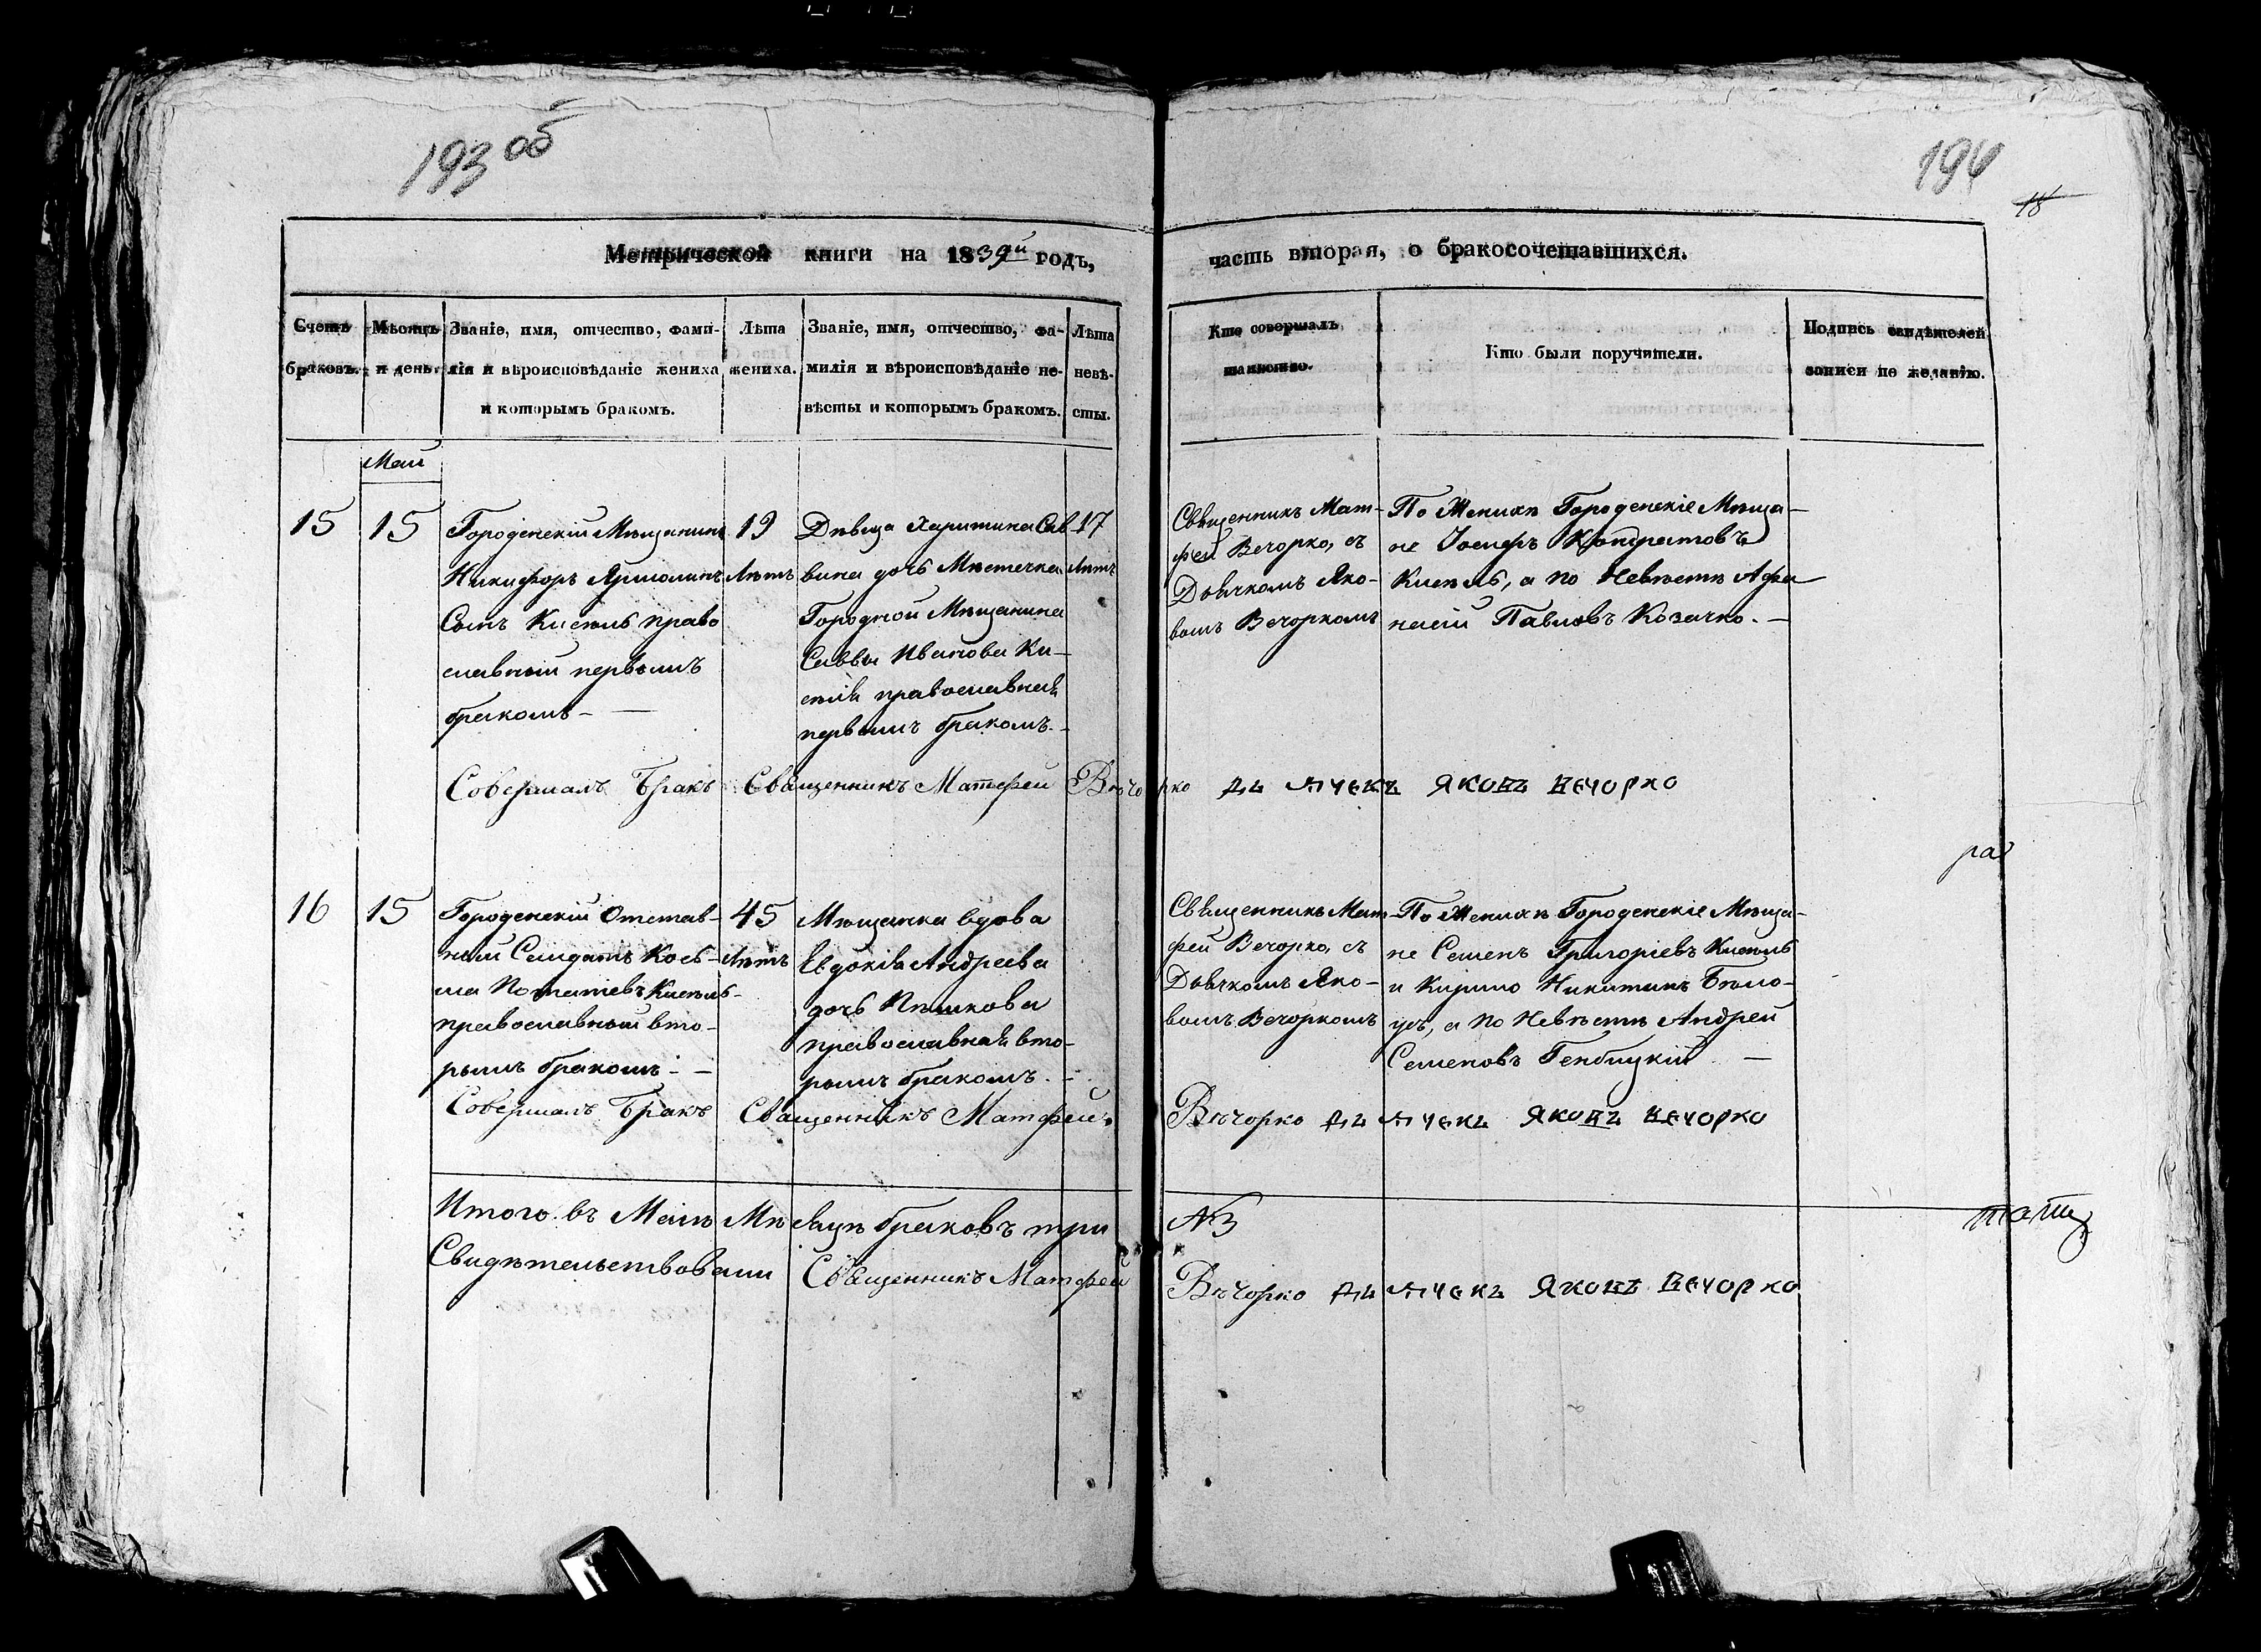 193 об
194
18
Метрической книги на 1839й годъ, часть вторая, о бракосочетавшихся.
Счетъ браковъ.
Мѣсяцъ и день.
Званіе, имя, отчество, фами-
лія и вѣроисповѣданіе жениха
и которымъ бракомъ.
Лѣта
жениха.
Званіе, имя, отчество, фа-
милія и вѣроисповѣданіе не-
вѣсты и которымъ бракомъ.
Лѣта
невѣ-
сты.
Кто совершалъ
таинство.
Кто были поручители.
Подпись свидѣтелей
записи по желанію.
Май
15
15
Городенскій Мѣщанинъ
Никифоръ Ярмолинъ
Сынъ Кисѣль право
славный первымъ
бракомъ-
19
Лѣтъ
Дѣвица Харитина Сав
вина дочь Мѣстечка
Городной Мѣщанина
Саввы Иванова Ки-
сѣля православная
первымъ бракомъ.
17
Лѣтъ
Священникъ Мат-
фей Вечорко, съ
Дьячкомъ Яко-
вомъ Вечоркомъ
По Женихѣ Городенскіе Мѣща-
не Іосифъ Кондратовъ
Кисѣль, а по Невѣстѣ Афа
насій Павловъ Козачко.
Совершалъ Бракъ Священникъ Матфей Вѣчорко дьячекъ Яковъ Вечорко
16
15
Городенскій Отстав-
ный Солдатъ Козь-
ма Потаповъ Кисѣль
православный вто-
рымъ бракомъ
45
Лѣтъ
Мѣщанка вдова
Евдокія Андреева
дочь Пѣшкова
православная вто-
рымъ бракомъ.
Священникъ Мат
фей Вечорко, съ
Дьячкомъ Яко-
вомъ Вечоркомъ
По Женихѣ Городенскіе Мѣща-
не Семенъ Григоріевъ Кисѣль
и Кирило Никитинъ Бѣло-
усъ, а по Невѣстѣ Андрей
Семеновъ Генбицкій
Совершалъ Бракъ Священникъ Матфей Вѣчорко дьячекъ Яковъ Вечорко
Итого въ Маіѣ Мѣсяцѣ браковъ три №3
Свидѣтельствовали Священникъ Матфей Вѣчорко дьячекъ Яковъ Вечорко